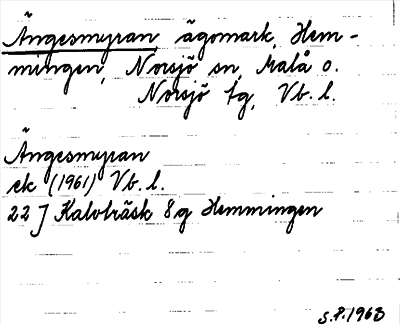 Ängesmyran, ägomark, Hem-
mingen, Norsjö sn, Malå o.
Norsjö tg, Vb. l.
Ängesmyran
ek (1961) Vb. l.
22 J Kalvträsk 8 g Hemmingen
S.P. 1963